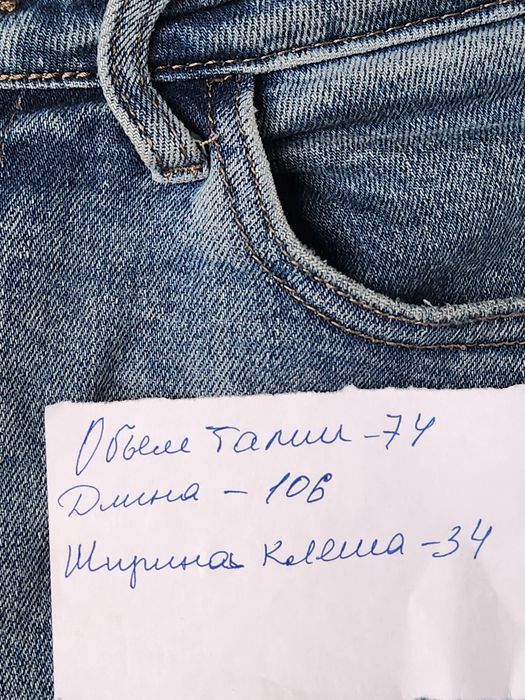 Объем талии - 74
Длина - 106
Ширина клеша - 34